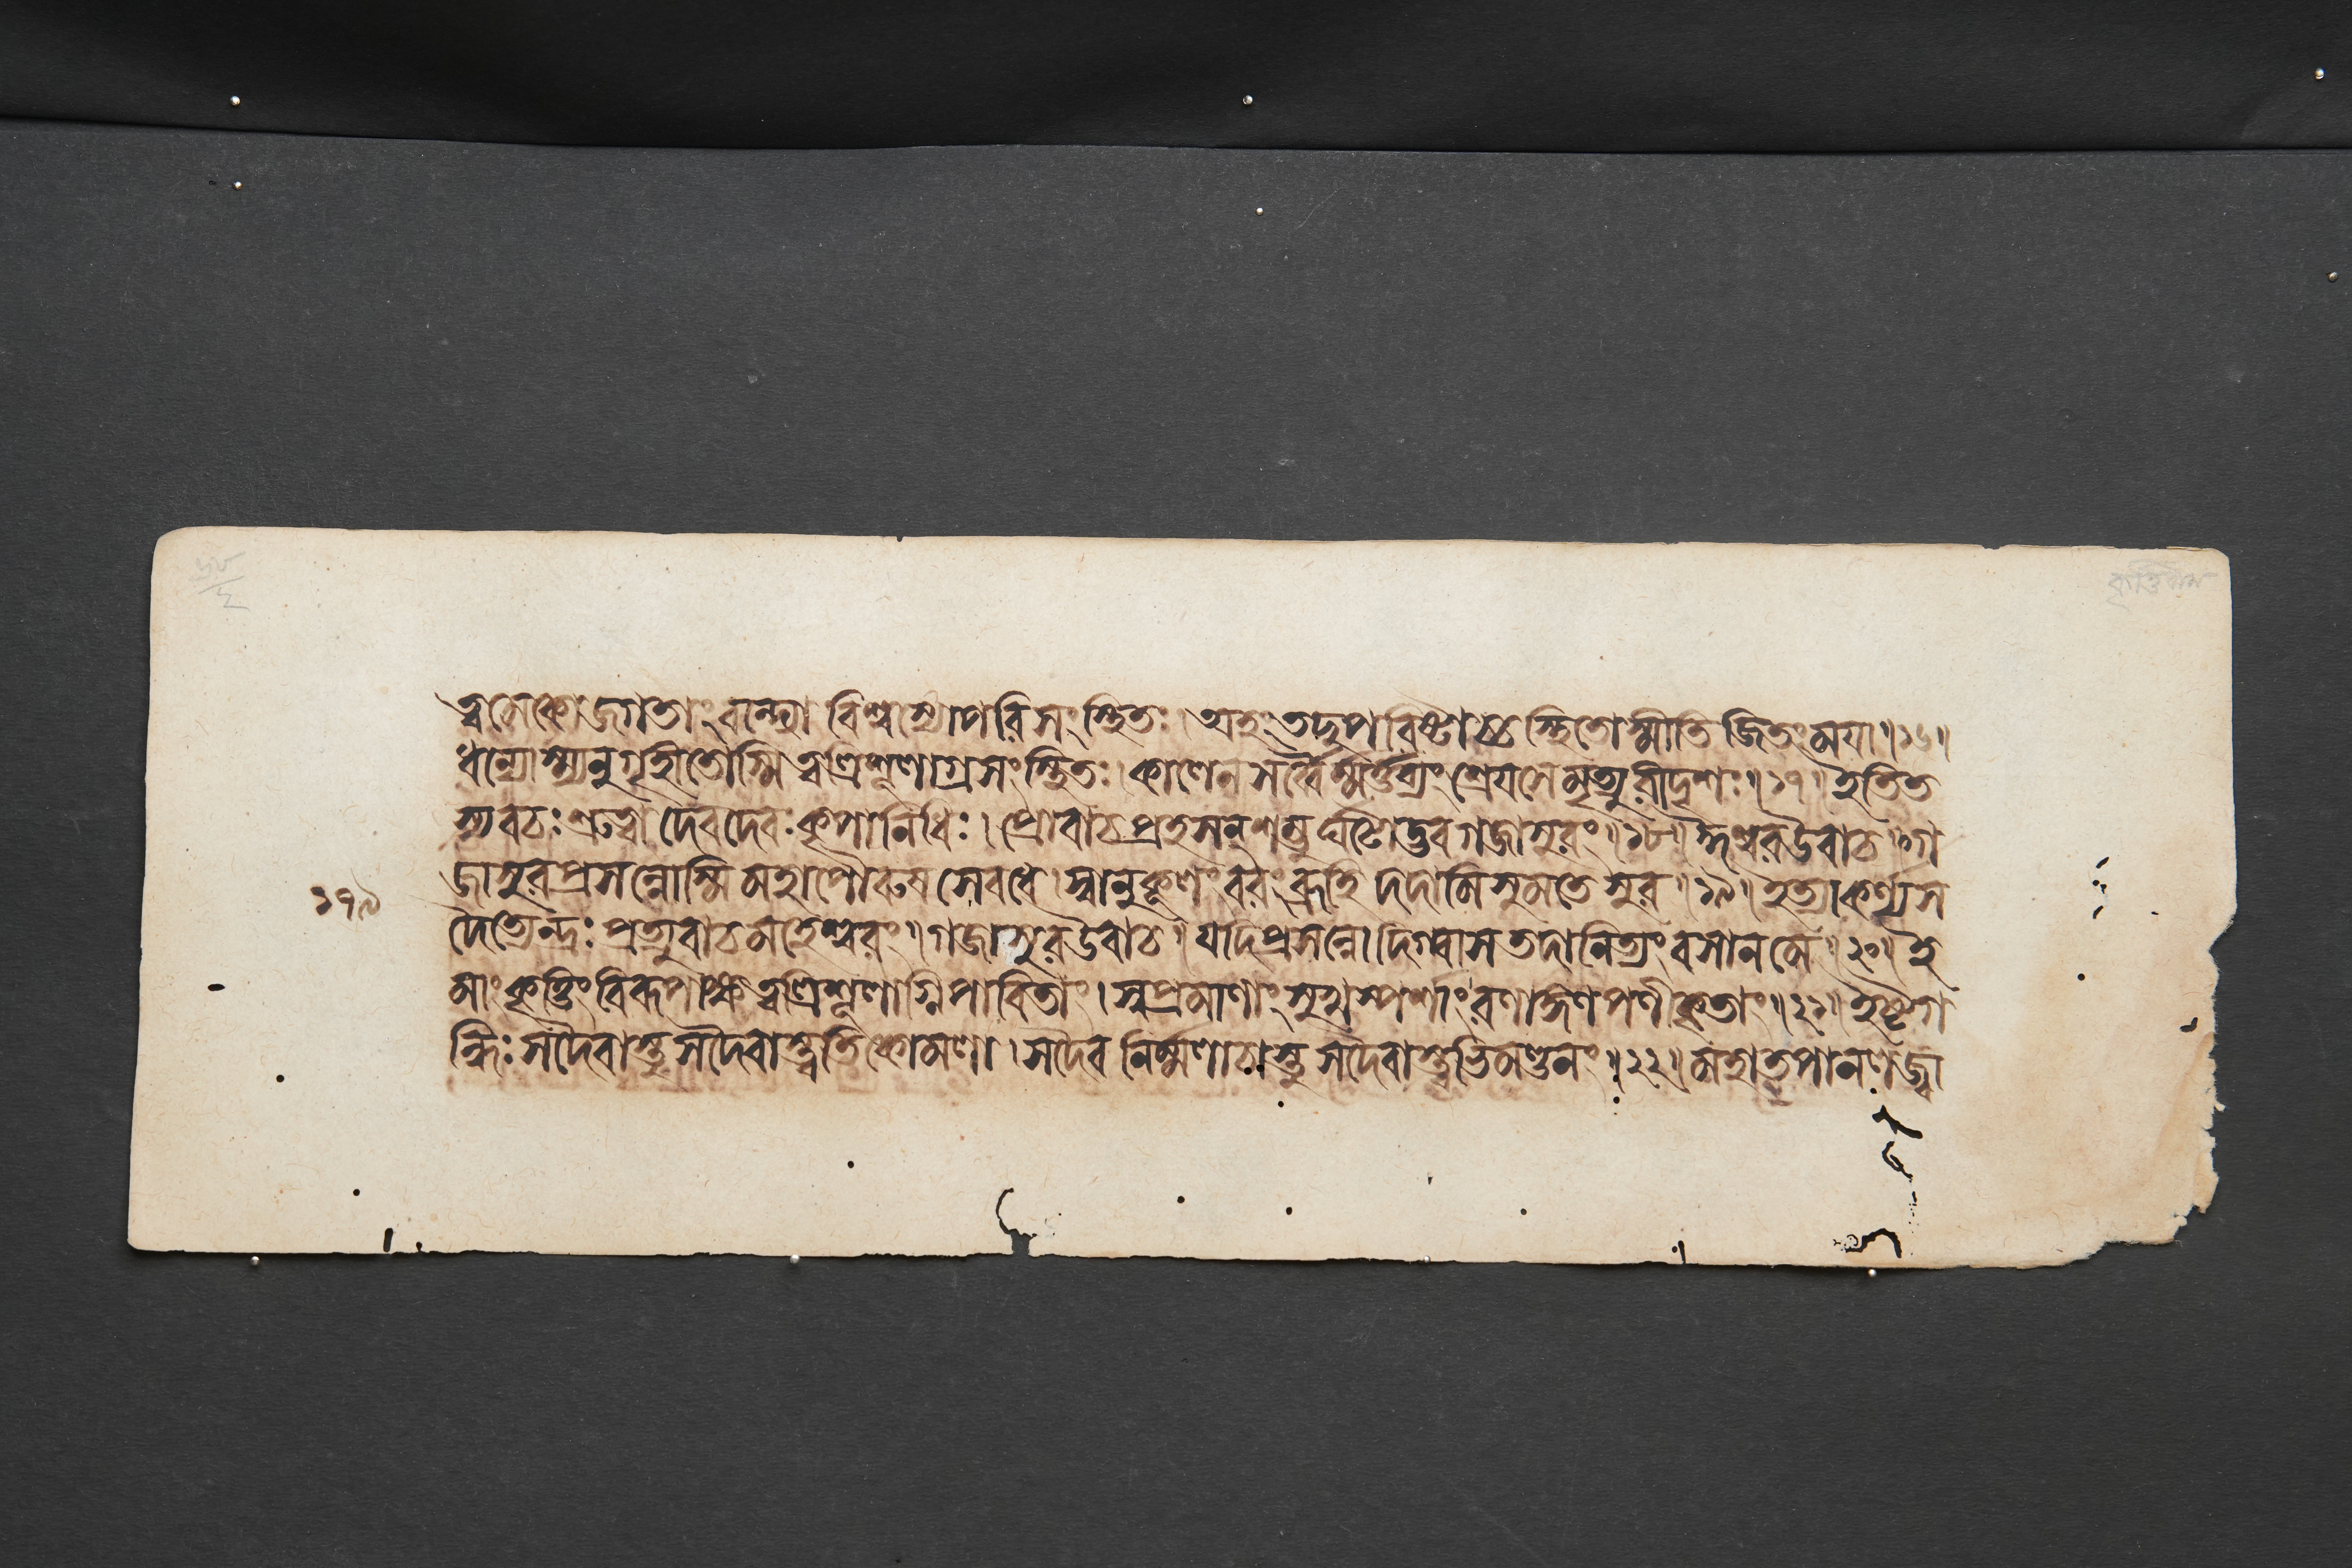 ত্বমেকো জগতাং বন্দ্যো বিশ্বস্যোপরি সংস্থিতঃ। অহং তদুপবিষ্টাচ্চ স্থিতোস্মীতি জিতং ময়া॥১৬॥
ধন্যোস্ম্যনুগৃহীতোস্মি ত্বত্রিশূলাগ্রসংস্থিতঃ। কালেন সর্ব্বৈর্ম্মর্ত্তব্যং শ্রেয়সে মৃত্যুরীদৃশঃ॥১৭॥ ইতি ত
স্য বচঃ শ্রুত্বা দেবদেবঃ কৃপানিধিঃ। প্রোবাচ প্রহসন্ শম্ভু র্ঘটোদ্ভব গজাসুরং॥১৮॥ ঈশ্বর উবাচ॥ গ
জাসুর প্রসন্নোস্মি মহাপৌরুষ সেবধে। স্বানুকূলং বরং ব্রূহি দদামি সুমতে সুর॥১৯॥ ইত্যাকর্ণ্য স
১৭৯
দৈত্যেন্দ্রঃ প্রত্যুবাচ মহেশ্বরং॥ গজাসুর উবাচ॥ যদি প্রসন্নো দিগ্বাস তদা নিত্যং বসান মে॥২০॥ ই
মাং কৃত্তিং বিরূপাক্ষ ত্বত্রিশূলাগ্নিপাবিতাং। সুপ্রমাণাং সুখস্পর্শাং রণাঙ্গণ পণীকৃতাং॥২১॥ ইষ্টগ
ন্ধিঃ সদৈবাস্তু সদৈবাস্ত্বতিকোমলা। সদৈব নির্ম্মলাচাস্তু সদৈবাস্ত্বতিমণ্ডনং॥২২॥ মহাতপানলজ্বা